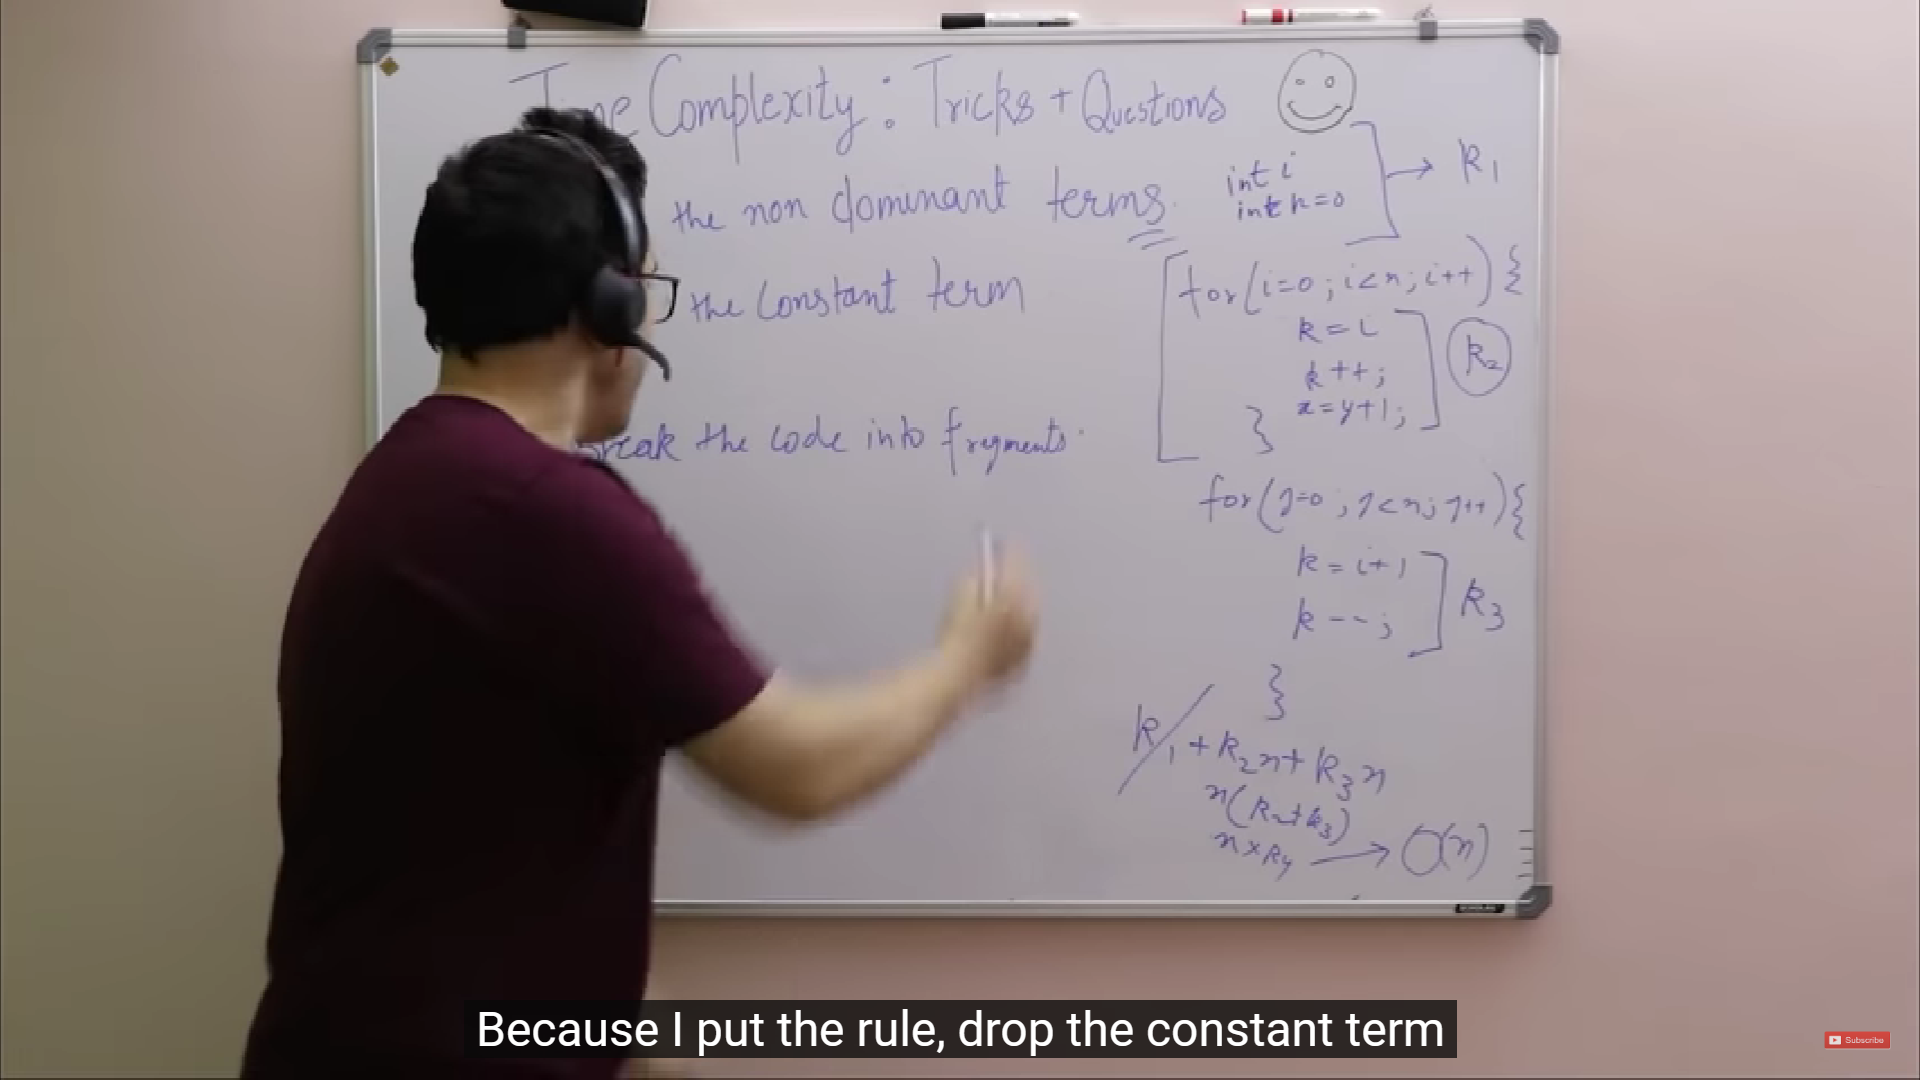 Time Complexity: Tricks + Questions
the non dominant terms.
the Constant term
Break the code into fragments.
int i
int k=0
k1
for(i=0; i<n; i++){
k = i
k++;
x=y+1;
}
k2
for(j=0; j<n; j++){
k = i+1
k--;
}
k3
k1 + k2n + k3n
n(k2+k3)
n×k4 → O(n)
Because I put the rule, drop the constant term
Subscribe